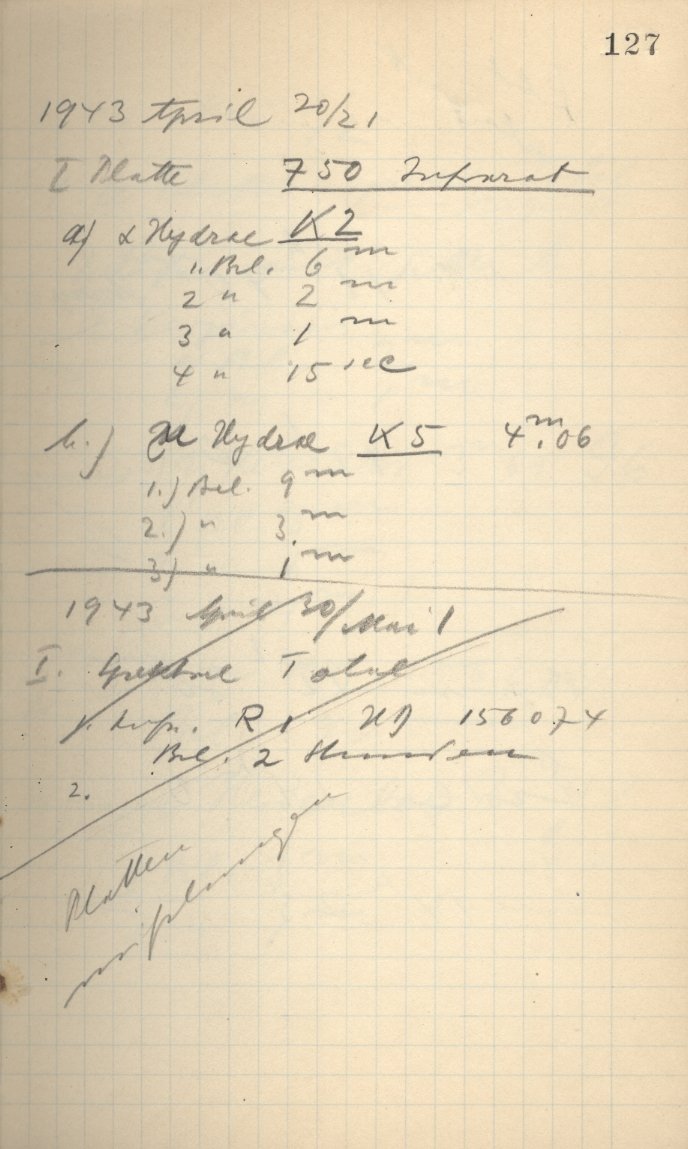 127
1943 April 20/21
I Platte 750 Infrarot
a) α Hydrae K2
1. Bel. 6 m
2 " 2 m
3 " 1 m
4 " 15 sec
b.) Hydrae K5 4m.06
1.) Bel. 9 m
2.) " 3 m
3) " 1 m
1943 April 30/Mai 1
I. Spektrel Total
1. R 1 HD 156074
Bel. 2 Stunden
2.
Platten